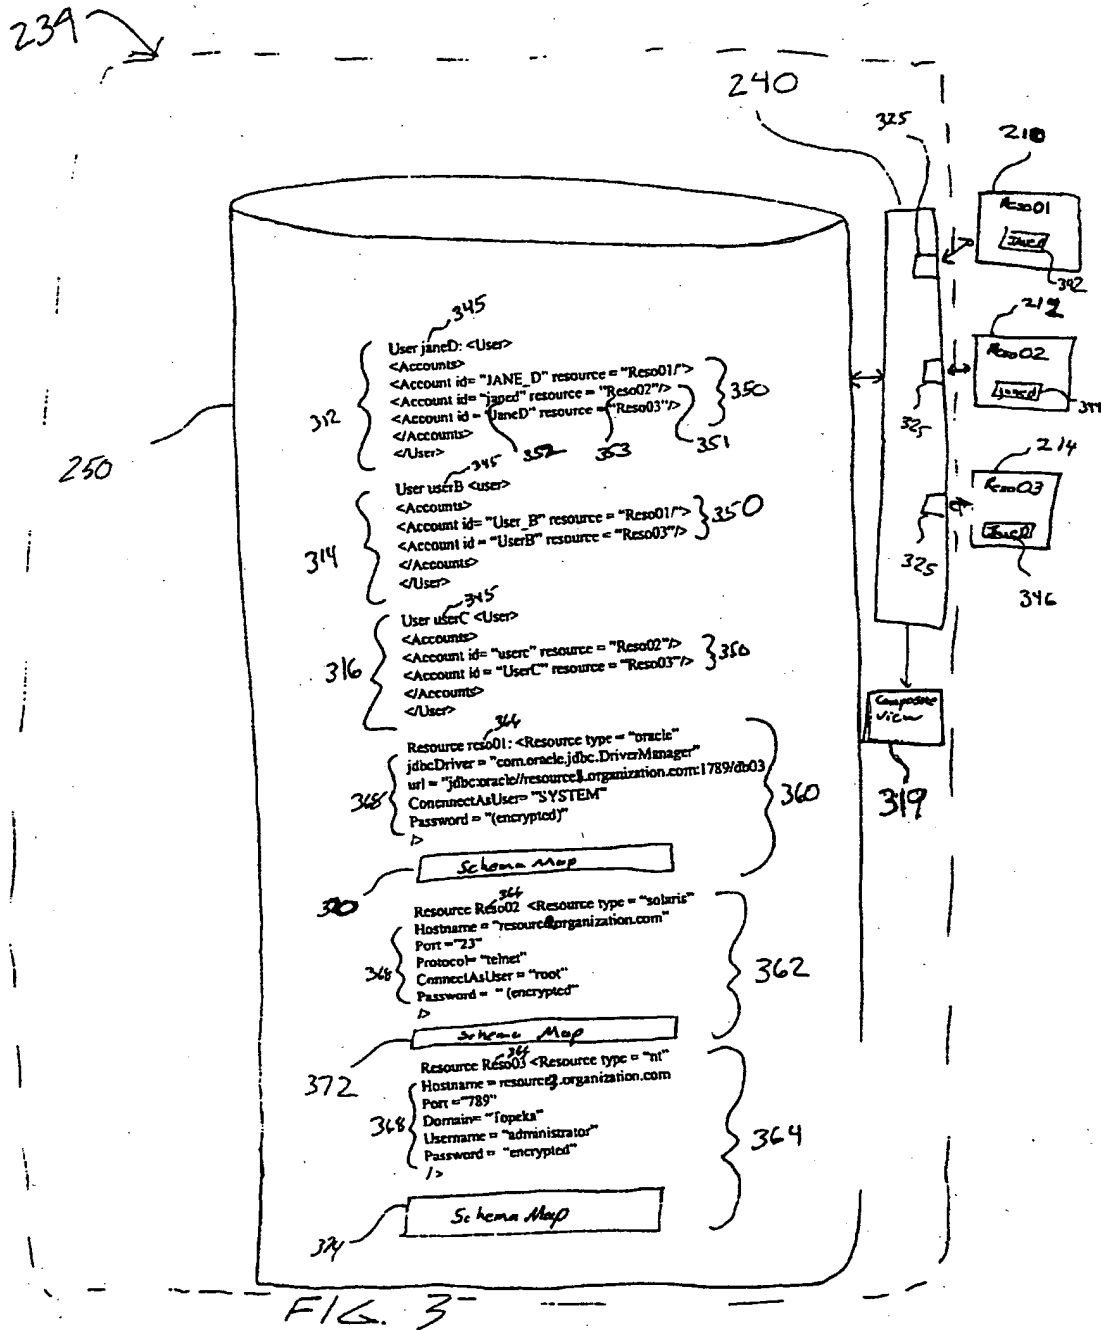 239
240
325
210
Reso01
JaneD
342
212
Reso02
janed
344
325
214
Reso03
JaneD
346
325
Composite
View
319
250
345
312
User janeD: <User>
<Accounts>
<Account id= "JANE_D" resource = "Reso01/">
<Account id= "janed" resource = "Reso02"/>
<Account id = "JaneD" resource = "Reso03"/>
</Accounts>
</User>
350
352
353
351
345
314
User userB <user>
<Accounts>
<Account id= "User_B" resource = "Reso01/">
<Account id = "UserB" resource = "Reso03"/>
</Accounts>
</User>
350
345
316
User userC <User>
<Accounts>
<Account id= "userc" resource = "Reso02"/>
<Account id = "UserC" resource = "Reso03"/>
</Accounts>
</User>
350
366
Resource reso01: <Resource type = "oracle"
jdbcDriver = "com.oracle.jdbc.DriverManager"
url = "jdbc:oracle//resource1.organization.com:1789/db03
ConennectAsUser= "SYSTEM"
Password = "(encrypted)"
/>
368
360
Schema Map
370
366
Resource Reso02 <Resource type = "solaris"
Hostname = "resource2.organization.com"
Port ="23"
Protocol= "telnet"
ConnectAsUser = "root"
Password = " (encrypted"
/>
368
362
Schema Map
372
366
Resource Reso03 <Resource type = "nt"
Hostname = resource3.organization.com
Port ="789"
Domain= "Topeka"
Username = "administrator"
Password = "encrypted"
/>
368
364
Schema Map
374
FIG. 3